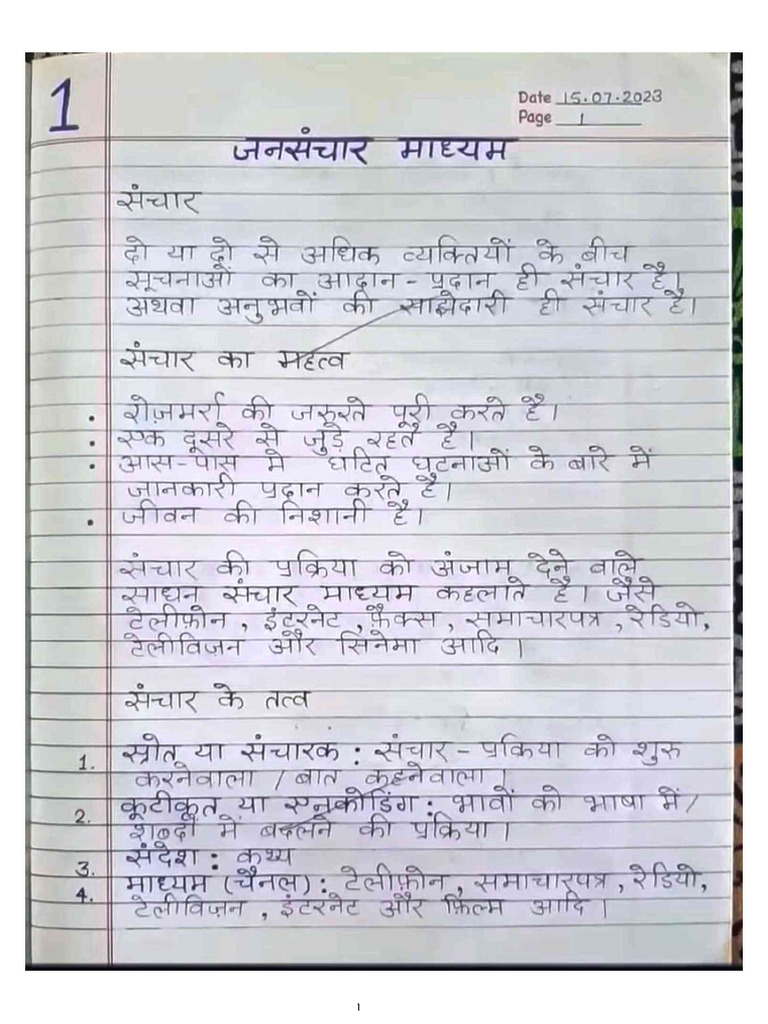 1
Date 15.07.2023
Page 1
जनसंचार माध्यम
संचार
दो या दो से अधिक व्यक्तियों के बीच
सूचनाओं का आदान-प्रदान ही संचार है।
अथवा अनुभवों की साझेदारी ही संचार है।
संचार का महत्व
• रोज़मर्रा की जरुरते पूरी करते है।
• एक दूसरे से जुड़े रहते है।
• आस-पास मे घटित घटनाओं के बारे में
जानकारी प्रदान करते है।
• जीवन की निशानी है।
संचार की प्रक्रिया को अंजाम देने वाले
साधन संचार माध्यम कहलाते है। जैसे
टेलीफ़ोन, इंटरनेट, फ़ैक्स, समाचारपत्र, रेडियो,
टेलीविज़न और सिनेमा आदि।
संचार के तत्व
1. स्रोत या संचारक : संचार-प्रकिया को शुरु
करनेवाला / बात कहनेवाला।
2. कूटीकृत या एनकोडिंग : भावों को भाषा में/
शब्दों में बदलने की प्रक्रिया।
3. संदेश : कथ्य
4. माध्यम (चैनल) : टेलीफ़ोन, समाचारपत्र, रेडियो,
टेलीविज़न, इंटरनेट और फ़िल्म आदि।
1